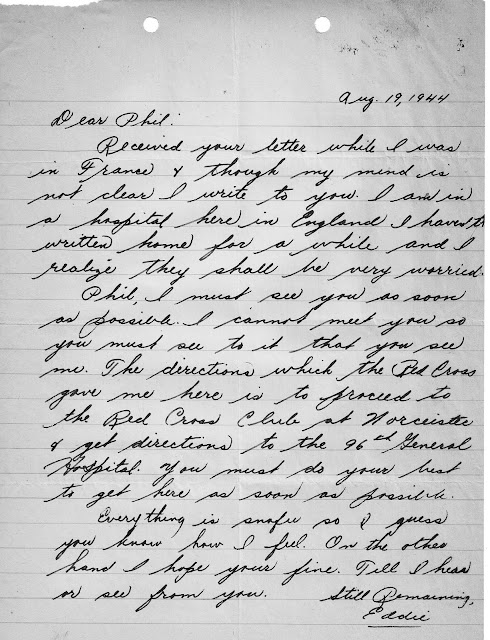 Aug. 19, 1944
Dear Phil:
Received your letter while I was
in France & though my mind is
not clear I write to you. I am in
a hospital here in England I haven't
written home for a while and I
realize they shall be very worried.
Phil, I must see you as soon
as possible. I cannot meet you so
you must see to it that you see
me. The directions which the Red Cross
gave me here is to proceed to
the Red Cross Club at Worceister
& get directions to the 96th General
Hospital. You must do your best
to get here as soon as possible.
Everything is snafu so I guess
you know how I feel. On the other
hand I hope your fine. Till I hear
or see from you. Still Remaining,
Eddie